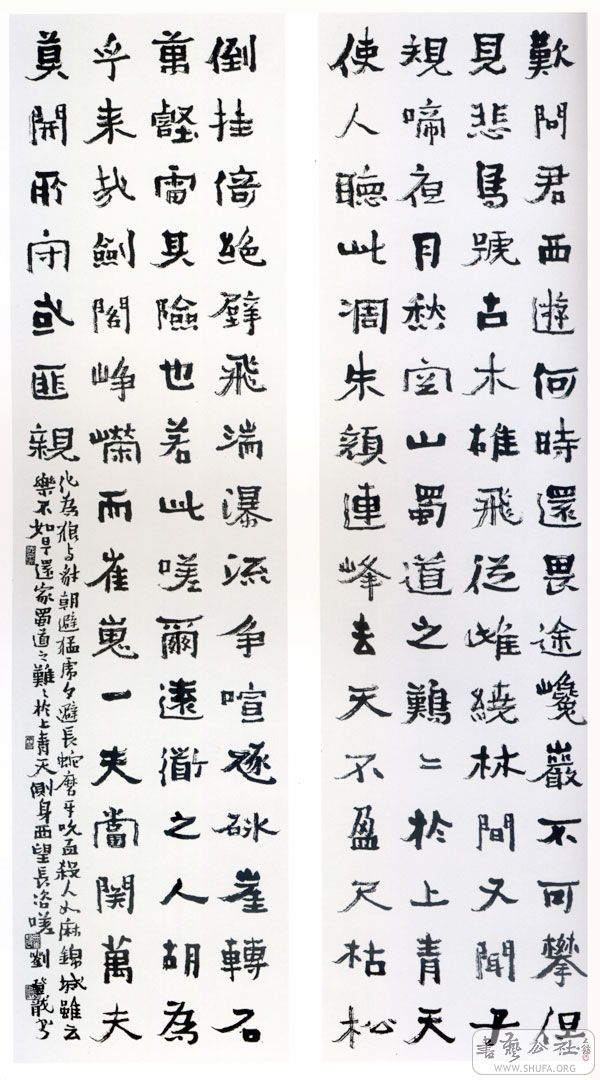 歎問君西遊何時還畏途巉巖不可攀但
見悲鳥號古木雄飛從雌繞林間又聞子
規啼夜月愁空山蜀道之難〻於上青天
使人聽此凋朱顏連峰去天不盈尺枯松
倒挂倚絶壁飛湍瀑流争喧豗砯崖轉石
萬壑雷其險也若此嗟爾遠衜之人胡為
乎来哉劍閣崢嶸而崔嵬一夫當関萬夫
莫開所守或匪親
化為狼与豺朝避猛虎夕避長蛇磨牙吮血殺人如麻錦城雖云
樂不如早還家蜀道之難〻於上青天側身西望長咨嗟 劉
書藝公社
WWW.SHUFA.ORG